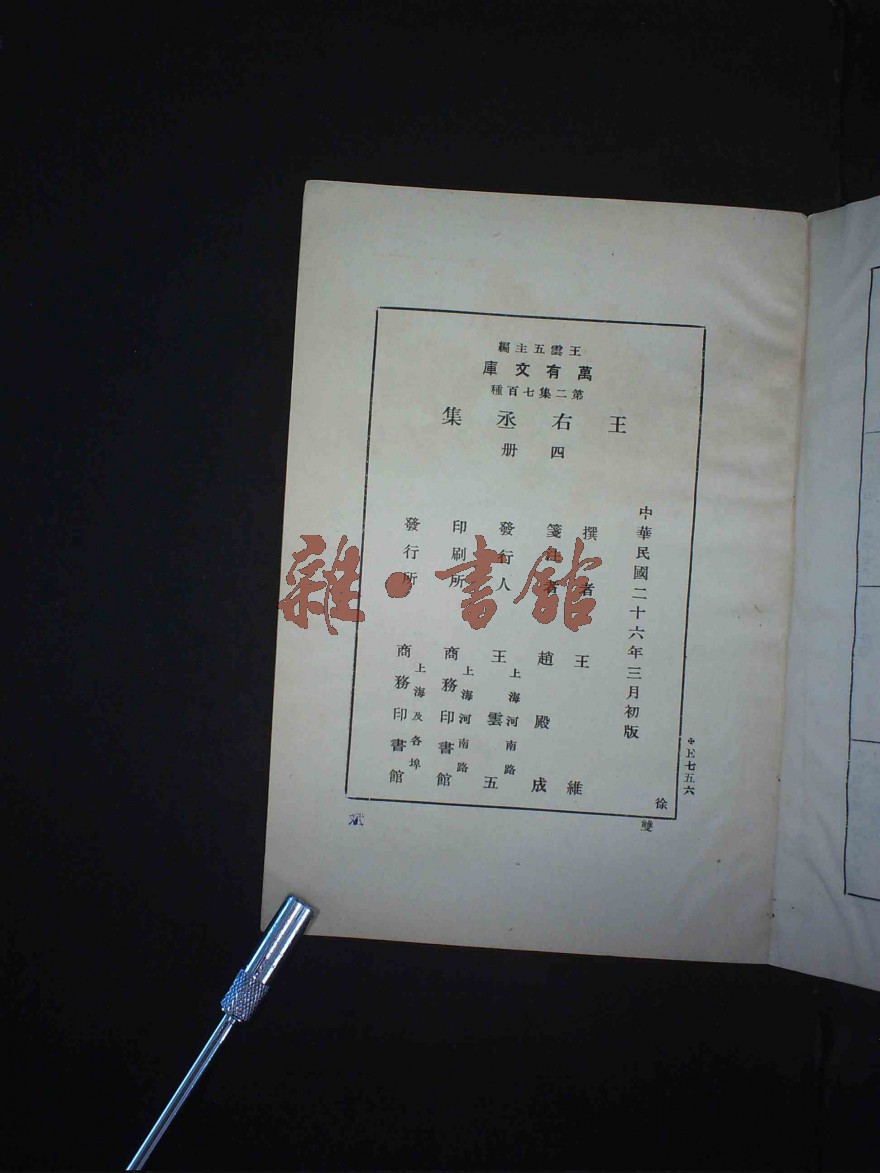 王雲五主編
萬有文庫
第二集七百種
王右丞集
四册
中華民國二十六年三月初版
撰者 王維
箋注者 趙殿成
發行人 王雲五
上海河南路
印刷所 商務印書館
上海河南路
發行所 商務印書館
上海及各埠
＊E七五六
徐
雙
斌
雜·書館